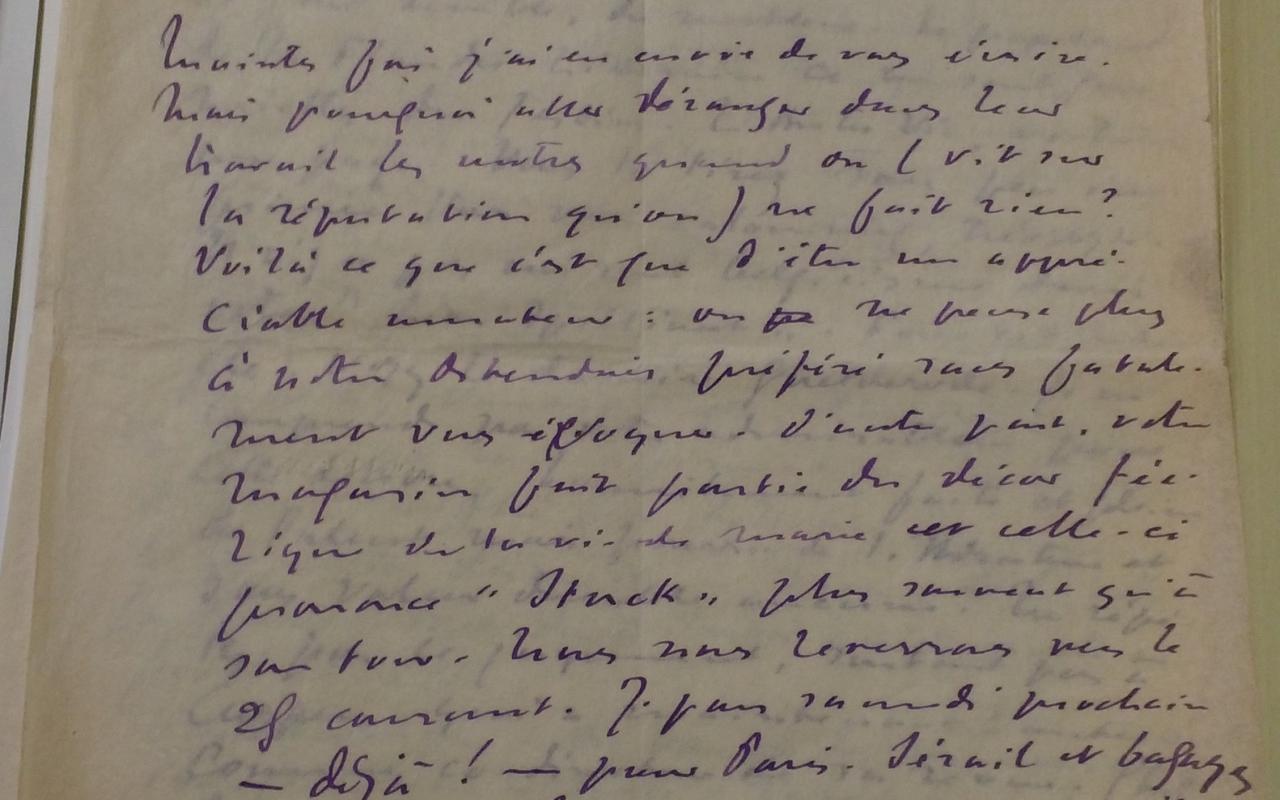 Maintes fois j'ai eu envie de vous écrire.
Mais pourquoi aller déranger dans leur
travail les autres quand on (vit sur
la réputation qu'on) ne fait rien?
Voilà ce que c'est que d'être un appré-
ciable amateur : on ne pense plus
à notre Ostendais préféré sans fatale-
ment vous évoquer. D'autre part, votre
magasin fait partie du décor fée-
rique de la vie de Marie et celle-ci
prononce " Stock " plus souvent qu'à
son tour. Nous nous reverrons vers le
25 courant. Je pars samedi prochain
— déjà ! — pour Paris. Sérail et bagages